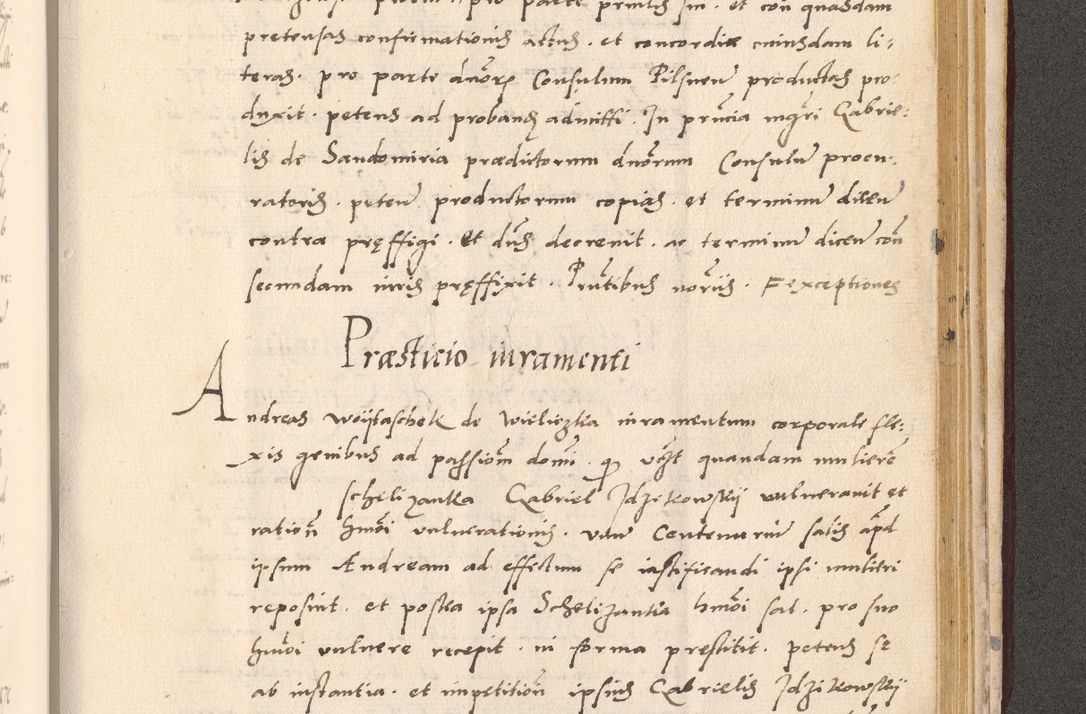 pro parte et con quasdam
pretensas confirmationis actus . et concordiæ cuiusdam li-
teras . pro parte dnorꝝ Consulum Pilsnen productas pro-
duxit . petens ad proband admitti . In pñcia mgri Gabrie-
lis de Sandomiria prædictorum dnorum Consulum procu-
ratoris . peten productorum copias . et terminum dicen
contra pręffigi . Et dns decrevit . ac terminum dicen con
secundam iuris pręffixit . Pñtibus notariis . Fexceptiones
Præsticio iuramenti
Andreas Woijtaschek de Wieliczka iuramentum corporale fle-
xis genibus ad passionem domini . quandam mulierem
schelizantka Gabriel Idzikowskij vulneravit et
rationem hmoi vulnerationis . vnum Centenarium salis apud
ipsum Andream ad effectum se iustificandi ipsi mulieri
reposuit . et postea ipsa Schelizantka hmoi sal . pro suo
hmoi vulnere recepit . in forma prestitit . petens se
ab instantia . et impetitione ipsius Gabrielis Idzikowskij